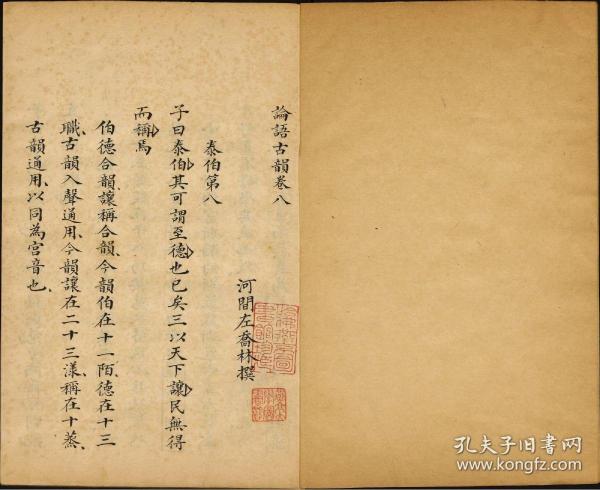 論語古韻卷八
河間左喬林撰
泰伯第八
子曰泰伯其可謂至德也已矣三以天下讓民無得
而稱焉
伯德合韻讓稱合韻今韻伯在十一陌德在十三
職古韻入聲通用今韻讓在二十三漾稱在十蒸
古韻通用以同為宮音也
孔夫子旧书网
www.kongfz.com